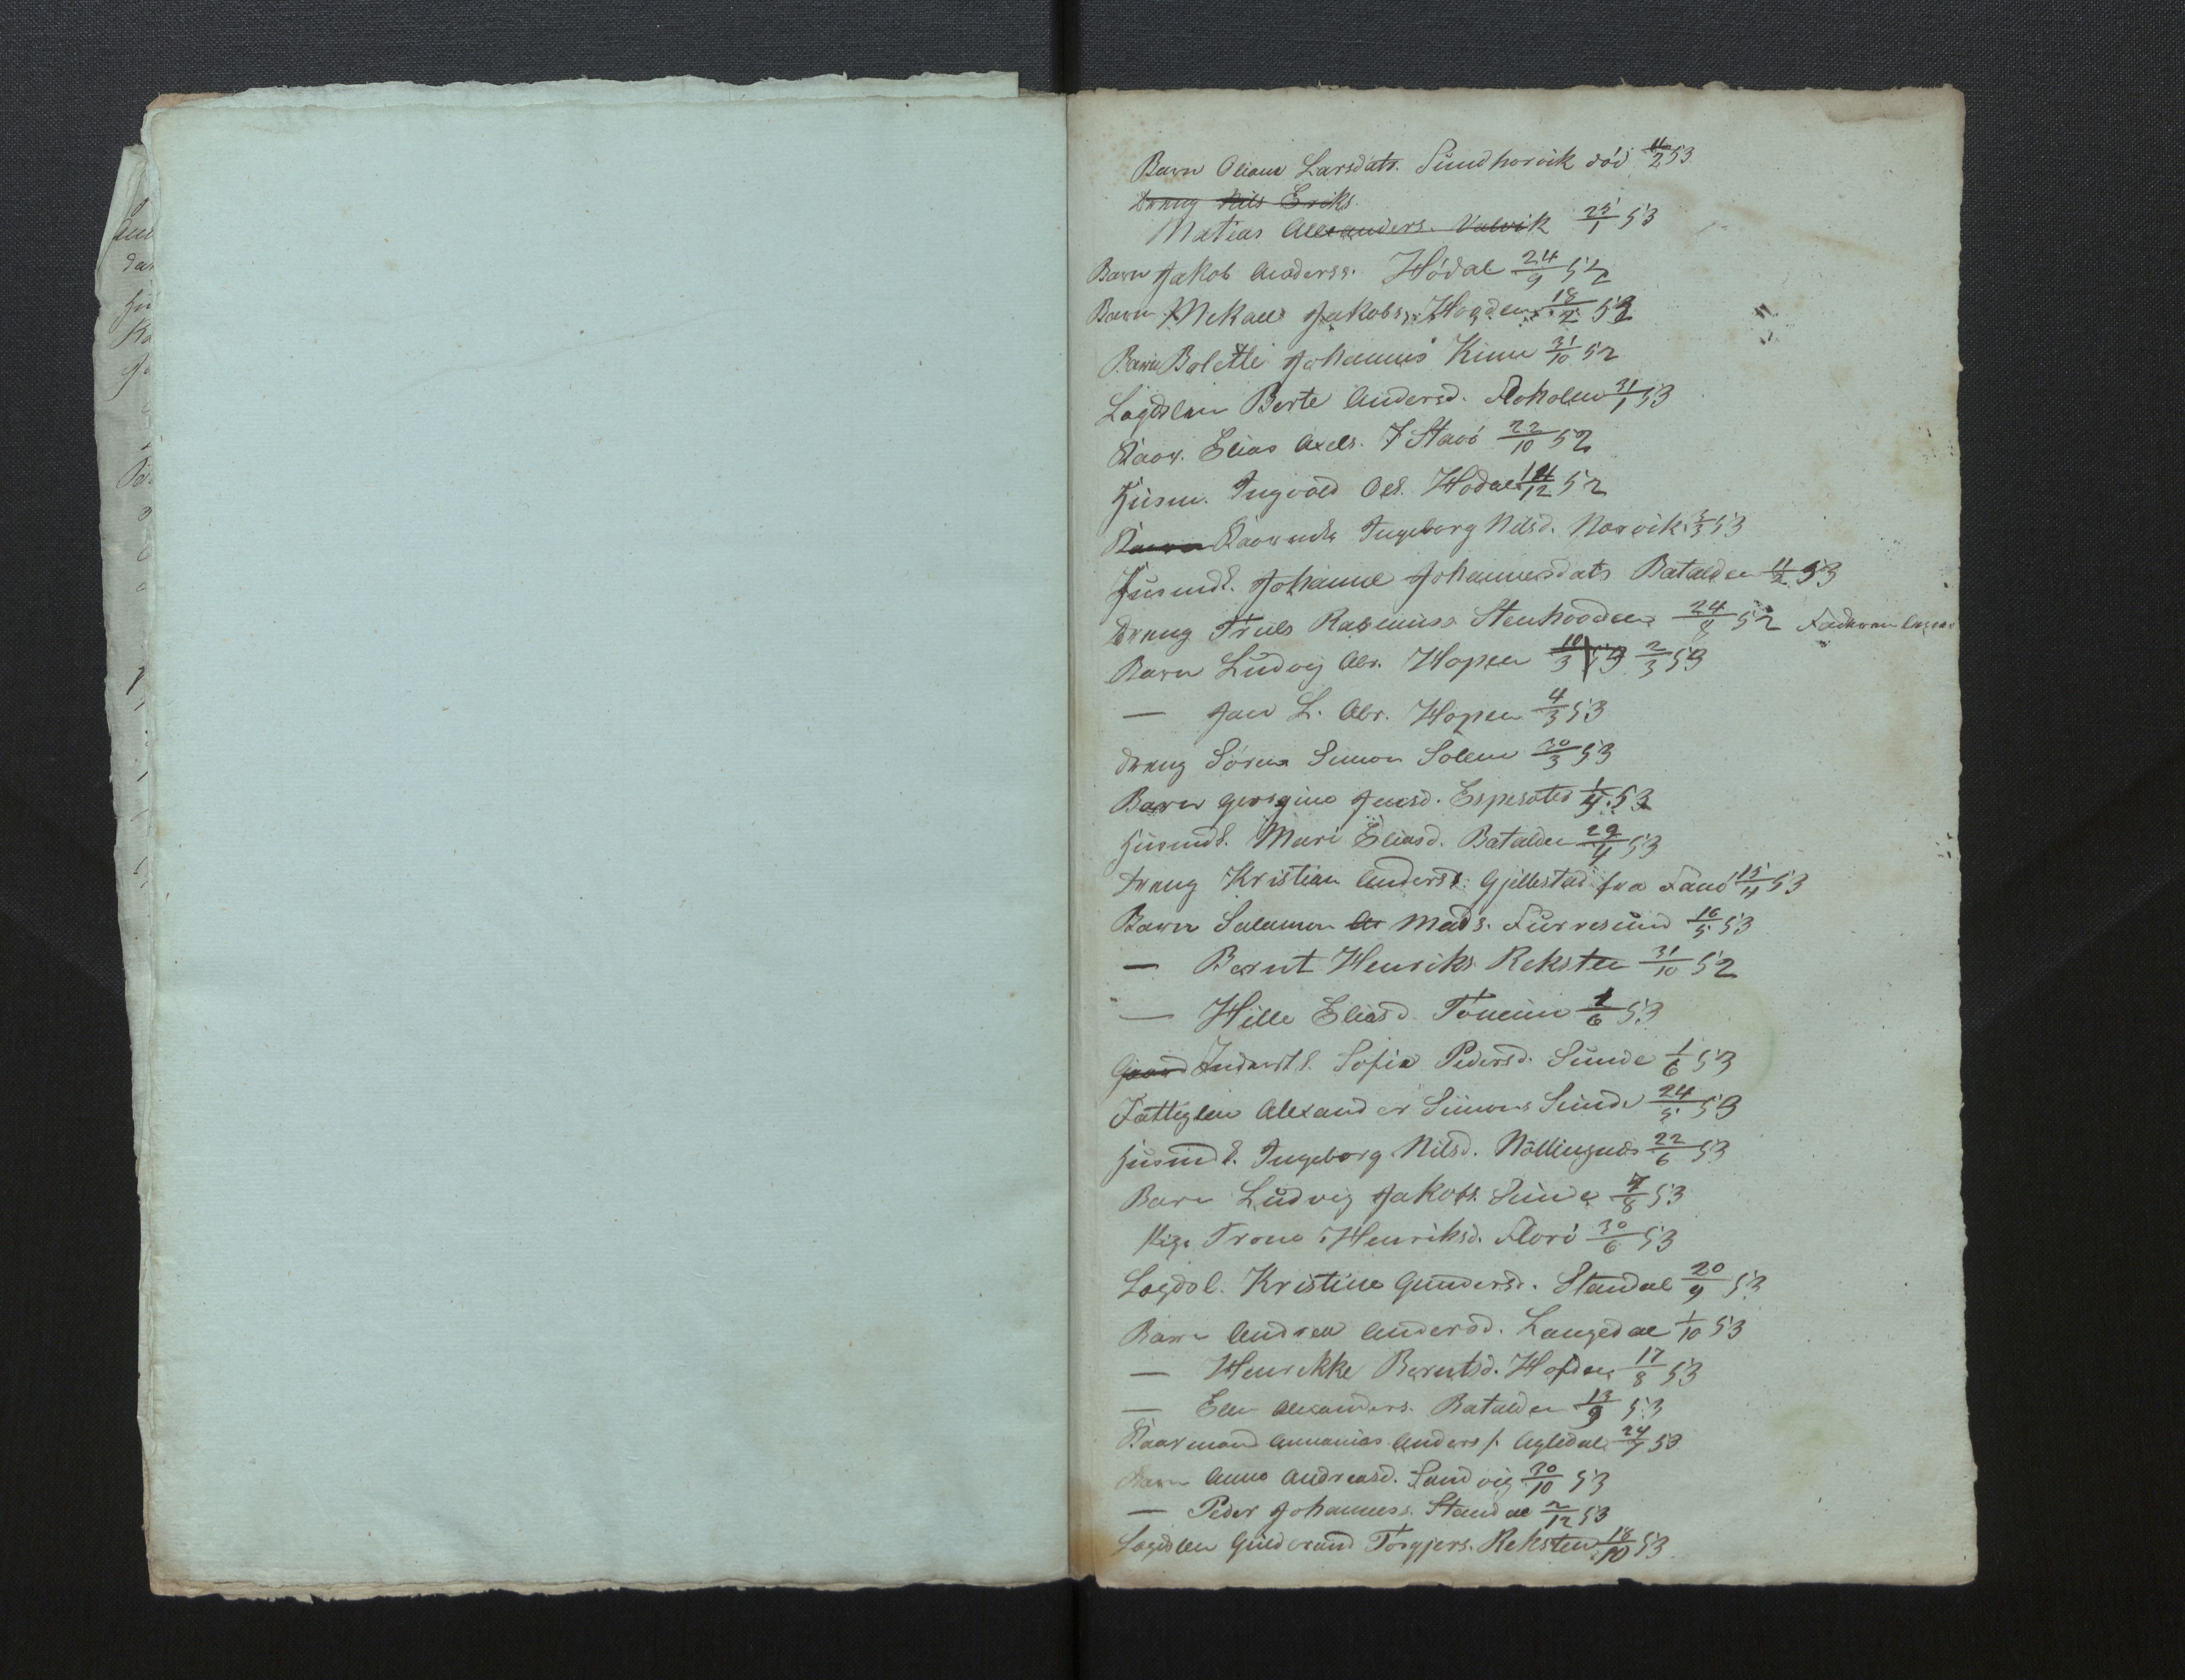 Barn Oliane Larsdatr. Sundhorvik död 11/2 53
Dreng Nils Eriks
Matias Alexanders. Valvik 25/1 53
Barn Jakob Anderss. Hödal 24/9 52
Barn Mekael Jakobs. Hogden 18/2 52
Barn Bolette Johannes Kinn 31/10 52
Lægdslem Berte Andersd. Floholm 31/1 53
Kaar. Elias Axels. Stavö 22/10 52
Husm. Ingvald Ols. Hodal 14/12 52
Kaarmdk Ingeborg Nilsd. Norvik 3/3 53
Husmdk. Johanne Johannesdatr Batalden 11/2 53
Dreng Truls Rasmuss Stenhovden 24/8 52
Barn Ludvig Abr. Hopen 10/3 53 2/3 53
— Jan L. Abr. Hopen 4/3 53
dreng Sören Simon Solem 30/3 53
Barn Georgine Jensd. Espesater 1/4 53
Husmdk. Mari Eliasd. Batalden 29/4 53
Dreng Kristian Anderss. Gjillestad fra Fanö 15/4 53
Barn Salamon Mads. Furresund 16/5 53
— Bernt Henriks Reksten 31/10 52
— Hille Eliasd. Tonnin 1/6 53
Gaard Inderstk. Sofie Pedersd. Sunde 1/6 53
Fattiglem Alexander Simons Sunde 24/5 53
Husmdk. Ingeborg Nilsd. Nöllingnæs 22/6 53
Barn Ludvig Jakobs. Sunde 7/8 53
Pige Trone Henriksd. Florö 30/6 53
Lægdsl. Kristine Gundersd. Standal 20/9 53
Barn Andrea Andersd. Langedal 1/10 53
— Henrikke Berntsd. Hofden 17/8 53
— Elen Alexanders. Batalden 13/9 53
Kaarmand Annanias Anders f. Agledal 24/7 53
Barn Anne Andreasd. Sandvig 30/10 53
— Peder Johanness. Standal 2/12 53
Lægdslem Gudmund Torgjers. Reksten 18/10 53